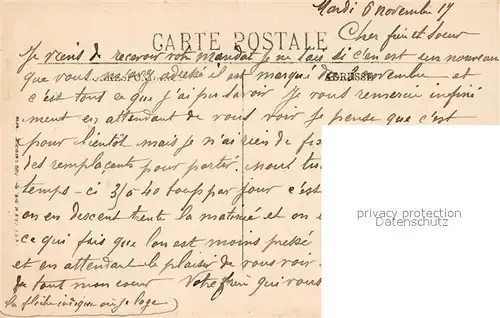 Mardi 6 novembre 17
Cher frère et Soeur
CARTE POSTALE
Je viens de recevoir votre mandat je ne sais si c'en est un nouveau
CORRESPONDANCE ADRESSE
que vous m'avez adressé il est marqué de novembre et
c'est tout ce que j'ai pu savoir Je vous remercie infini
ment en attendant de vous voir Je pense que c'est
pour bientôt mais je n'ai rien de
des remplaçants pour partir. nous
temps-ci 35 à 40 coup par jour c'est
on en descent trente la matinée et on
ce qui fais que l'on est moins pressé
et en attendant le plaisir de vous voir
de tout mon coeur Votre frère qui vous
la flèche indique où je loge
privacy protection
watermark
Datenschutz-
Wasserzeichen